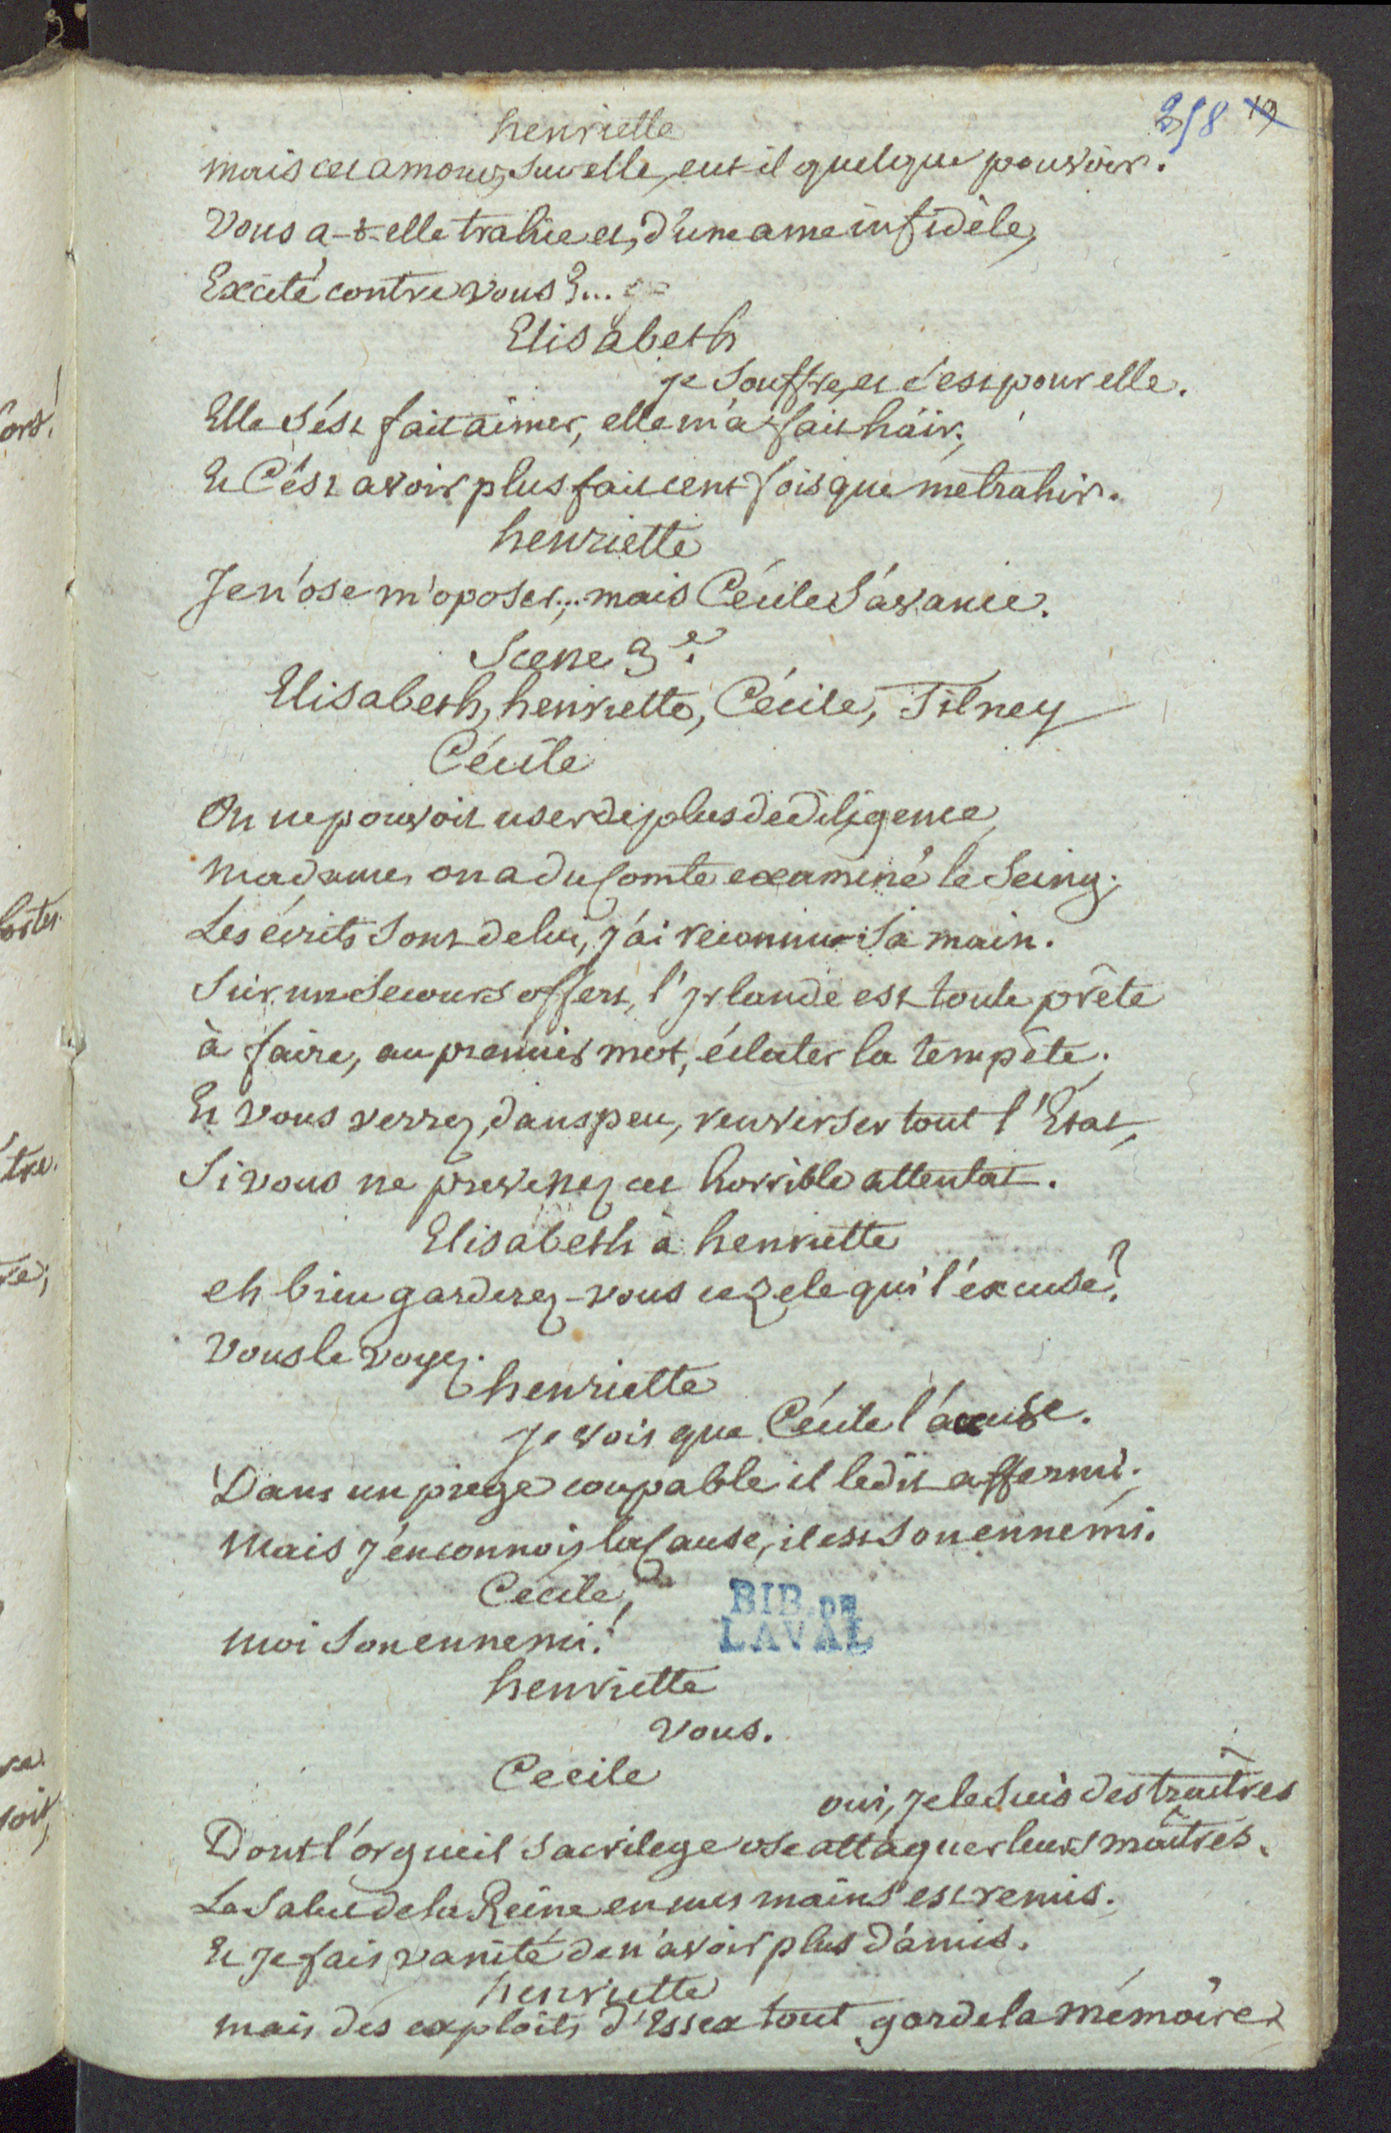 258 19
henriette
mais cet amour, sur elle, eut il quelque pouvoir.
Vous a-t-elle trahie et, d'une ame infidèle,
Excité contre vous?...
Elisabeth
je souffre, et c'est pour elle.
Elle s'est fait aimer, elle m'a fait häir;
Et C'est avoir plus fait cent fois que me trahir.
henriette
Je n'ose m'oposer... mais Cécile s'avance.
Scene 3e.
Elisabeth, henriette, Cécile, Tilney
Cécile
On ne pouvoit user de plus de diligence,
Madame, on a du Comte examiné le Seing;
Les écrits sont de lui, j'ai reconnu sa main.
Sur un secours offert, l'Irlande est toute prête
à faire, au premier mot, éclater la tempête;
Et vous verrez, dans peu, renverser tout l'Etat,
Si vous ne prevenez cet horrible attentat.
Elisabeth à henriette
eh bien garderez-vous ce zele qui l'excuse?
Vous le voyez.
henriette
Je vois que Cécile l'accuse.
Dans un piege coupable il le dit affermi;
Mais j'en connois la Cause, il est son ennemi.
Cecile,
Moi son ennemi!
BIB. DE
LAVAL
henriette
Vous.
Cecile
oui, je le suis des traîtres
Dont l'orgueil sacrilege ose attaquer leurs maîtres.
Le Salut de la Reine en mes mains est remis.
Et je fais vanité de n'avoir plus d'amis.
henriette
mais des exploits d'Essex tout garde la mémoire